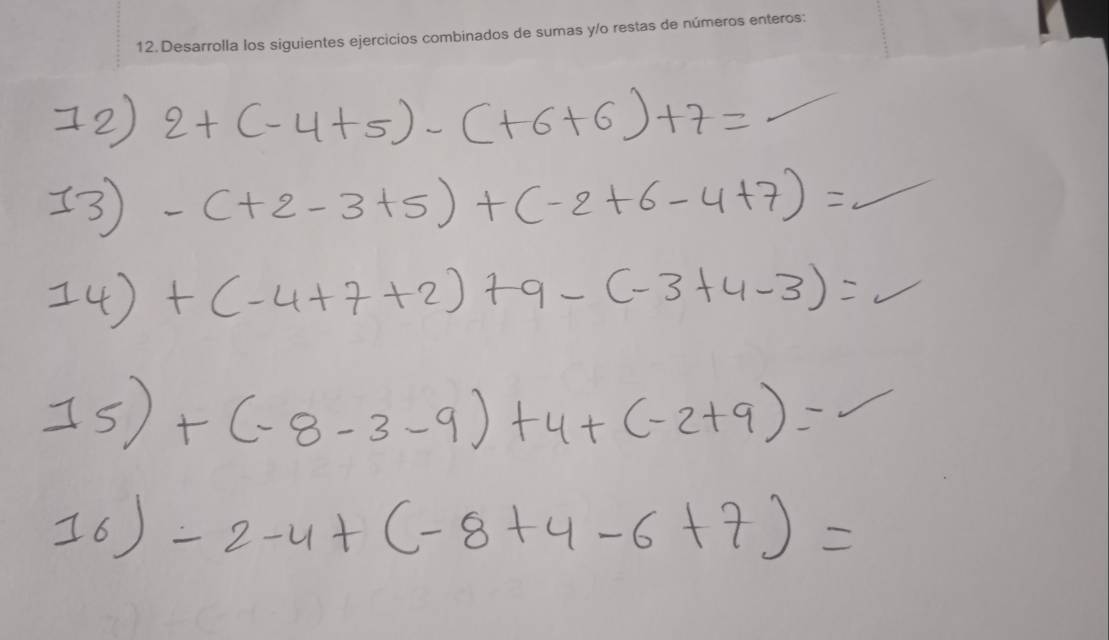 12. Desarrolla los siguientes ejercicios combinados de sumas y/o restas de números enteros:
12) 2+(-4+5)-(+6+6)+7=
13) -(+2-3+5)+(-2+6-4+7)=
14) +(-4+7+2)+9-(-3+4-3)=
15) +(-8-3-9)+4+(-2+9)=
16) -2-4+(-8+4-6+7)=